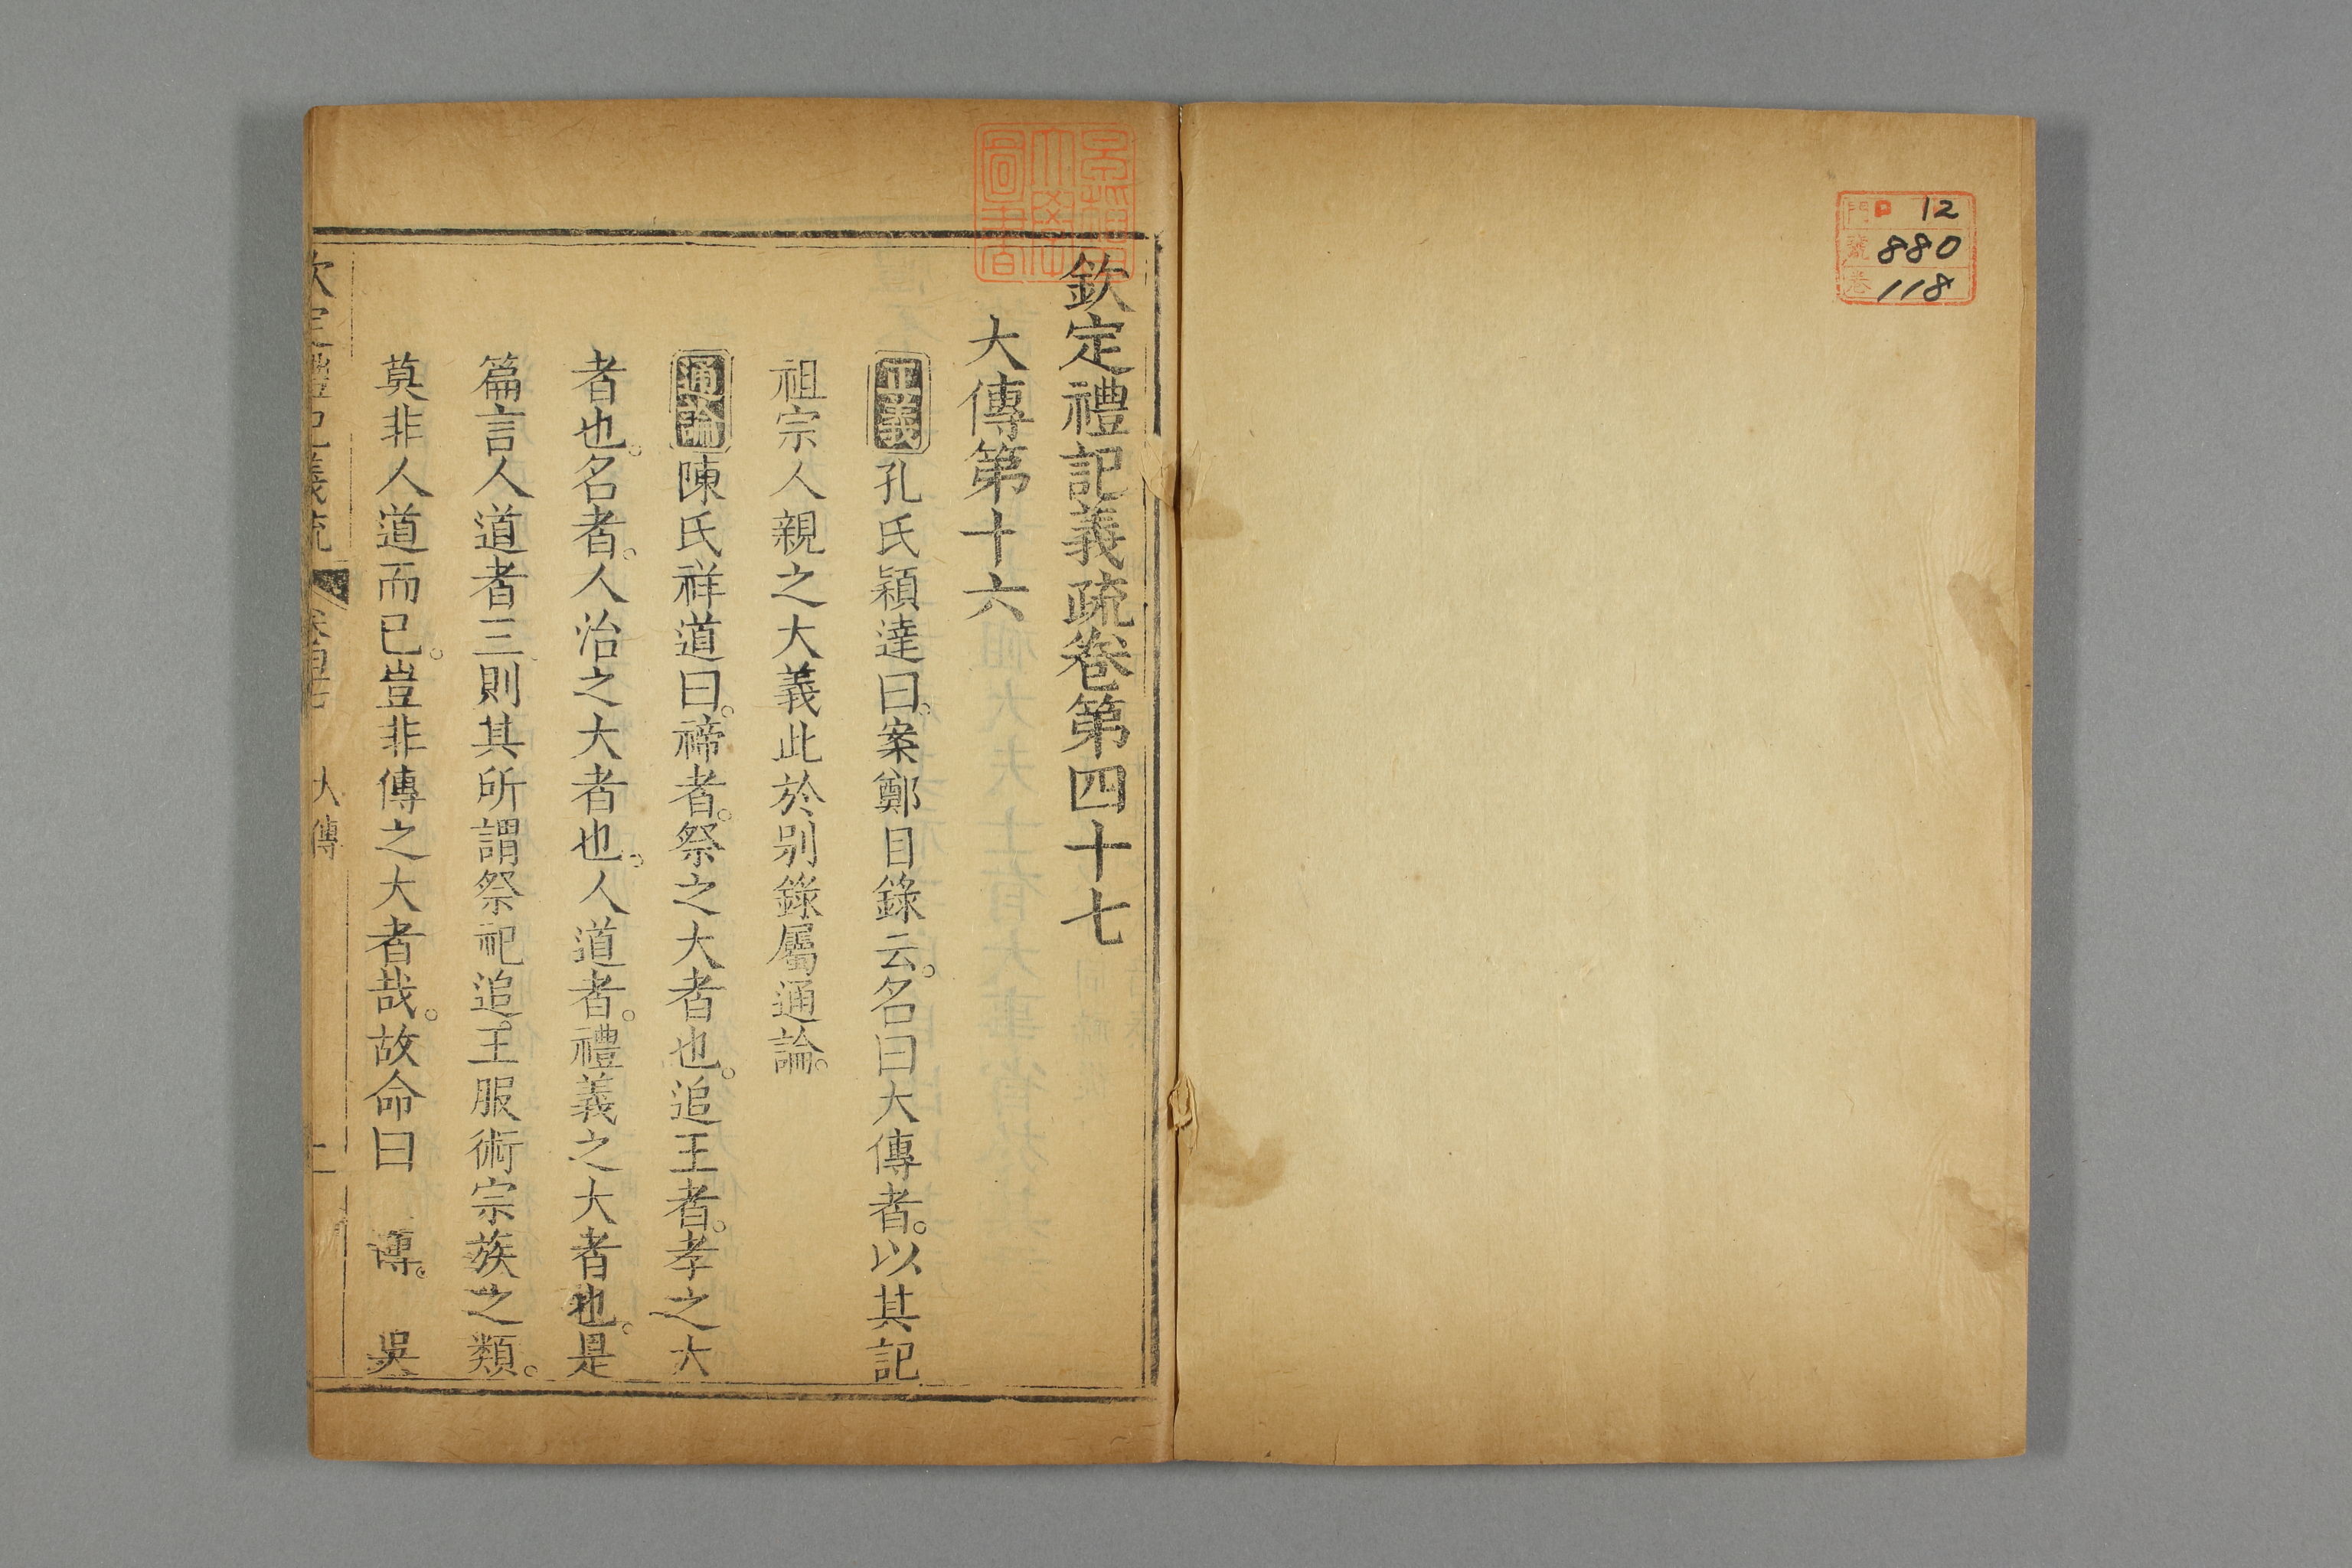 門 12
號 880
卷 118
欽定禮記義疏卷第四十七
大傳第十六
正義孔氏穎達曰。案鄭目錄云。名曰大傳者。以其記
祖宗人親之大義此於别錄屬通論。
通論陳氏祥道曰。禘者。祭之大者也。追王者。孝之大
者也。名者。人治之大者也。人道者。禮義之大者也。是
篇言人道者三則其所謂祭祀追王服術宗族之類。
莫非人道而已。豈非傳之大者哉。故命曰 傳。 吳
欽定禮記義疏 卷四十七 大傳 一